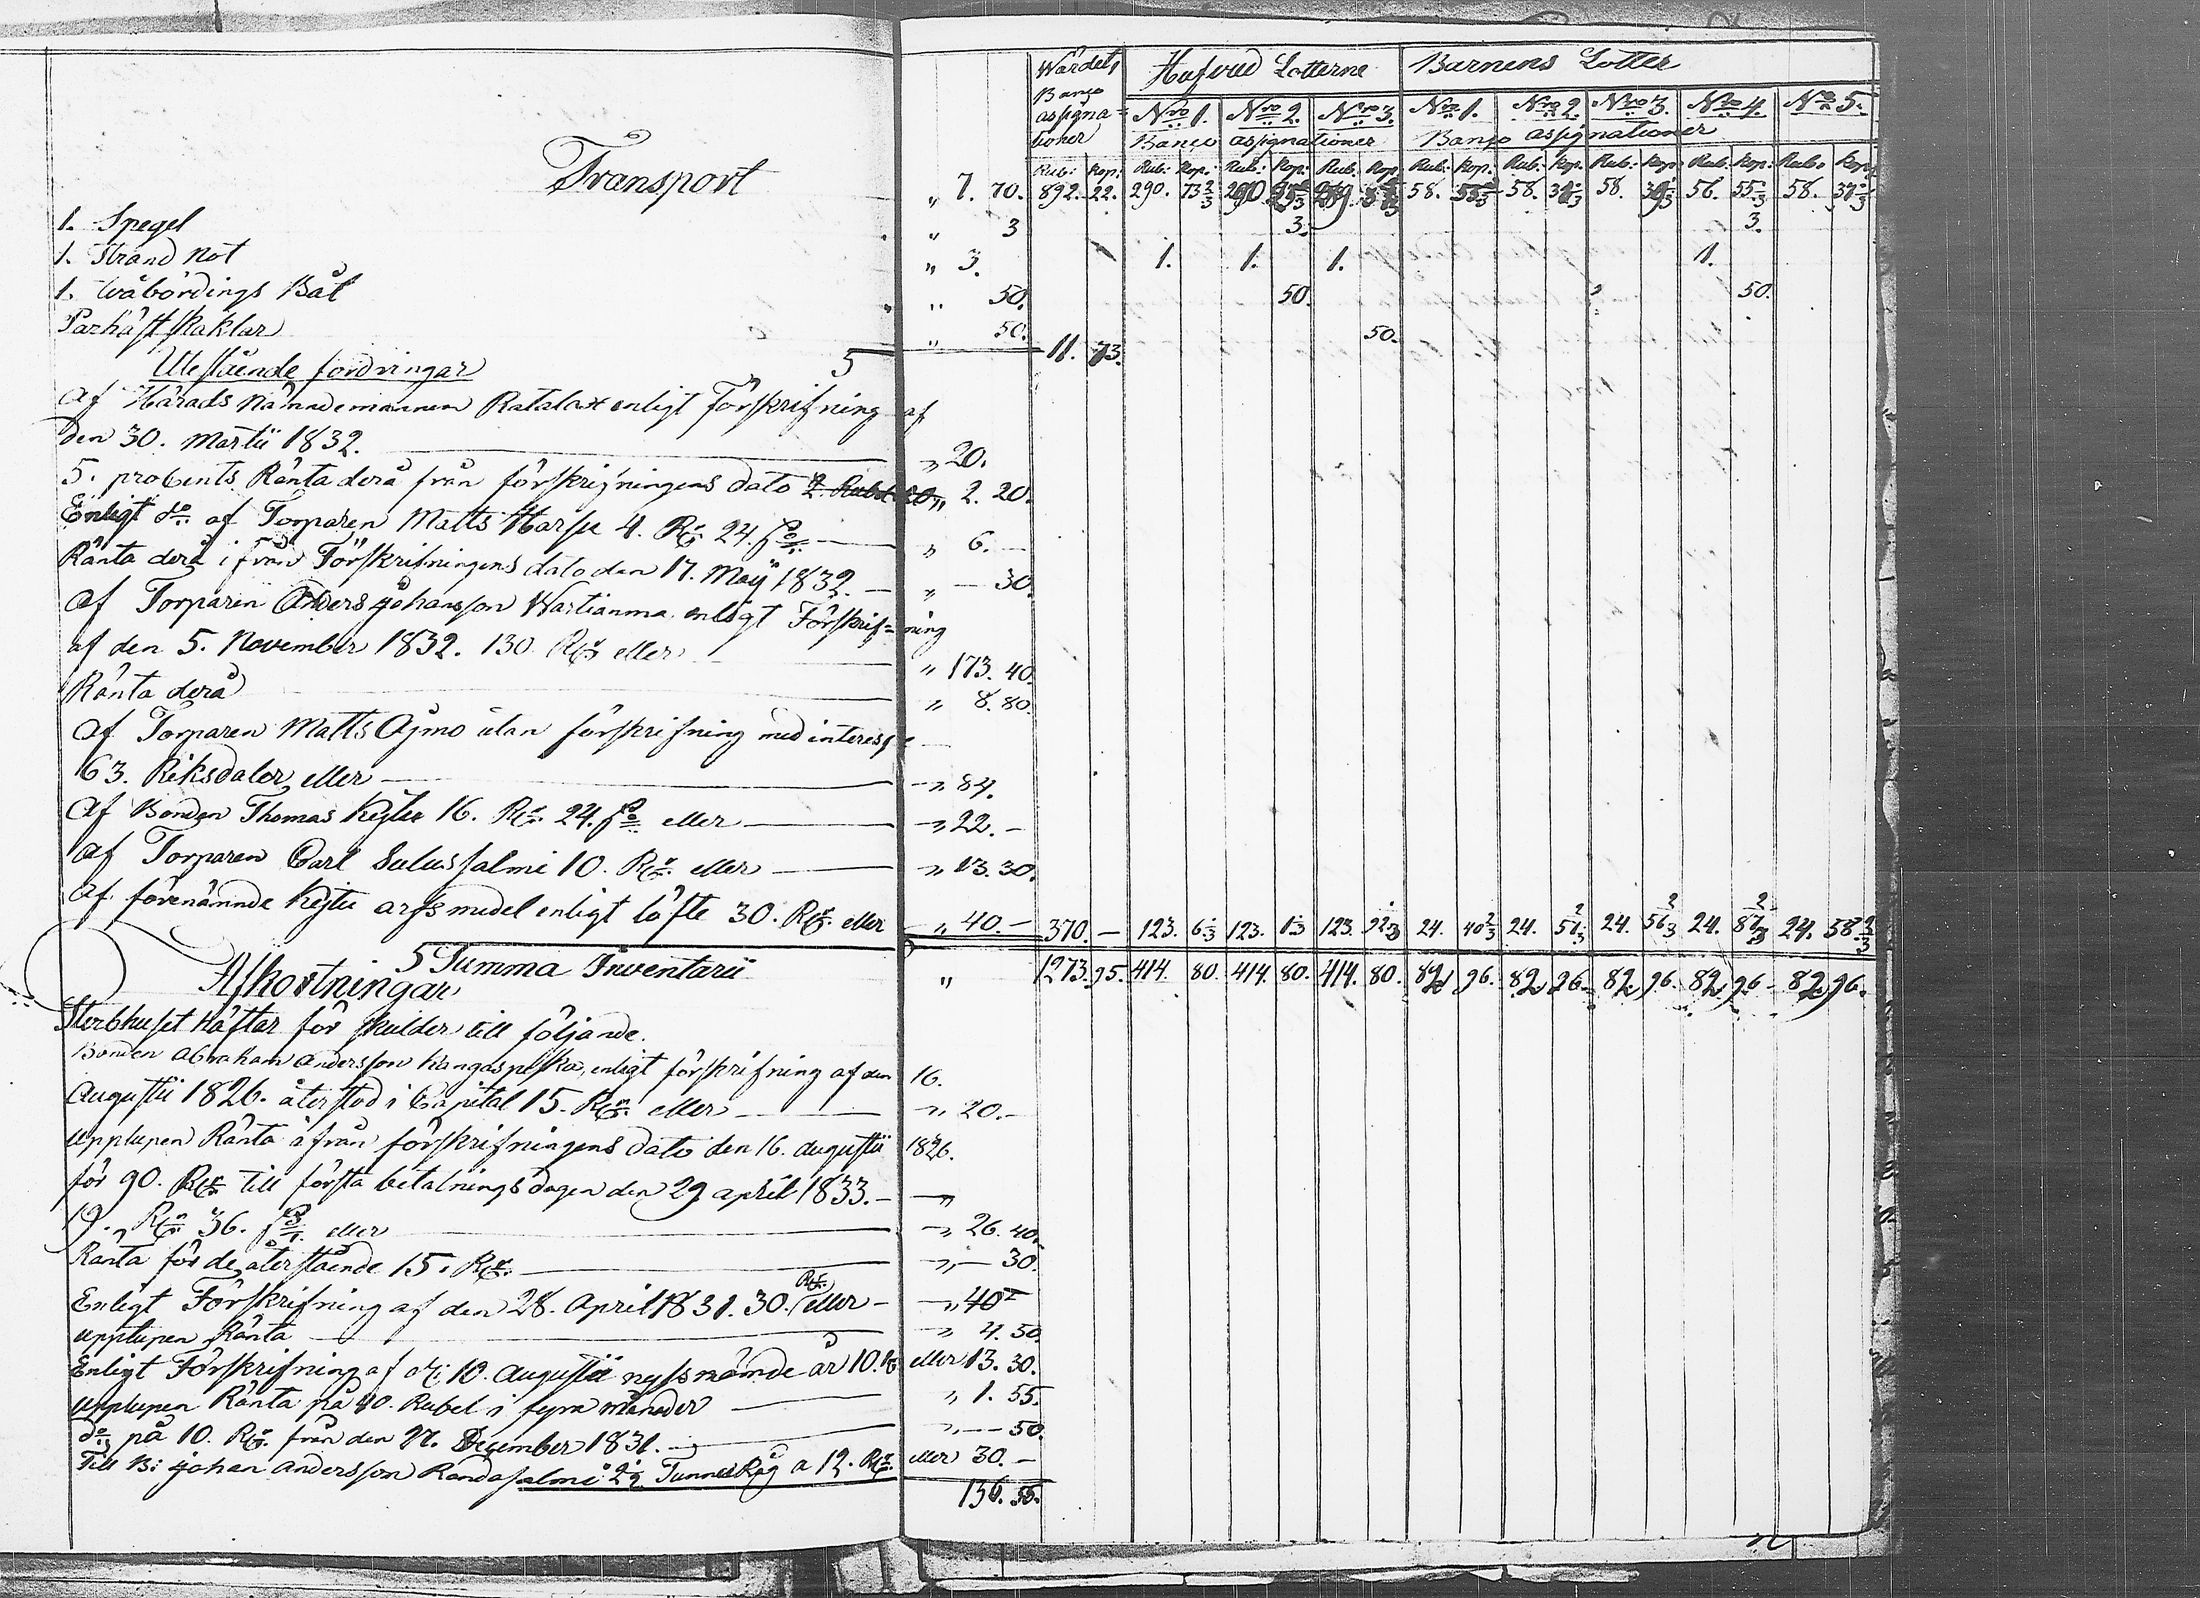 Wärdet, Hufvud Lotterne Barnens Lotter
Banco assignationer Nro 1. Nro 2. Nro 3. Nro 1. Nro 2. Nro 3. Nro 4. No 5.
Banco assignationer Banco assignationer
Rub: Kop: Rub: Kop: Rub: Kop: Rub. Kop Rub: Kop. Rub: Kop. Rub: Kop. Rub. Kop: Rub. Kop.
Transport " 7. 70. 892. 22. 290. 73 2/3 290 289. 58. 58. 58. 56. 55 58.
1. Spegel " 3 3. 3.
1. Strand Not " 3. 1. 1. 1. 1.
1. tvåbördings Båt " 50. 50. 50.
Parhäst skaklar " 50. 11. 73. 50.
Utestående fordringar 5
Af Härads Nämndemannen Ratalax enligt Förskrifning af
den 30. Martii 1832. " 20.
5. procents Ränta derå från förskrifningens dato " 2. 20.
Enligt do af Torparen Matts Harju 4. Rdr 24. " 6. –
Ränta derå ifrån Förskrifningens dato den 17. Maÿ 1832. – " – 30.
Af Torparen Anders Johansson Wartianma enligt Förskrif=ning
af den 5. November 1832. 130 Rdr eller " 173. 40.
Ränta derå " 8. 80.
Af Torparen Matts Ajmo utan förskrifning med interesse
63. Riksdaler eller " 84.
Af Bonden Thomas 16. Rdr. 24. eller " 22. –
Af Torparen Carl Sulussalmi 10. Rdr. eller " 13. 30.
Af förenämnde arfsmedel enligt löfte 30. Rdr. eller " 40. – 370. – 123. 6 1/3 123. 123. 24. 40 2/3 24. 24. 24. 24. 58. 2/3
5 Summa Inventarii " 1273. 95. 414. 80. 414. 80. 414. 80. 82 96. 82 96. 82 96. 82 96 82 96.
Afkortningar
Sterbhuset häftar för skulder till följande.
Bonden Abraham Andersson enligt förskrifning af den 16.
Augustii 1826. återstod i Capital 15. Rdr. eller " 20. –
upplupen Ränta ifrån förskrifningens dato den 16. Augustii 1826.
för 90. Rdr till första betalningsdagen den 29 april 1833. –
19. Rdr 36. eller " 26. 40.
Ränta för de återstående 15. Rdr. " – 30.
Enligt Förskrifning af den 28. April 1831. 30. Rdr. eller – " 40 –
upplupen Ränta " 4. 50.
Enligt Förskrifning af 10. Augustii nyssnämde år 10. eller 13. 30.
upplupen Ränta på 40. Rubel i fyra månader " 1. 55.
do på 10. Rdr. från den 27. December 1831. – " – 50.
Till B: Johan Andersson Randasalmi Tunne Råg a 12. Rdr. eller 30. –
136. 55.